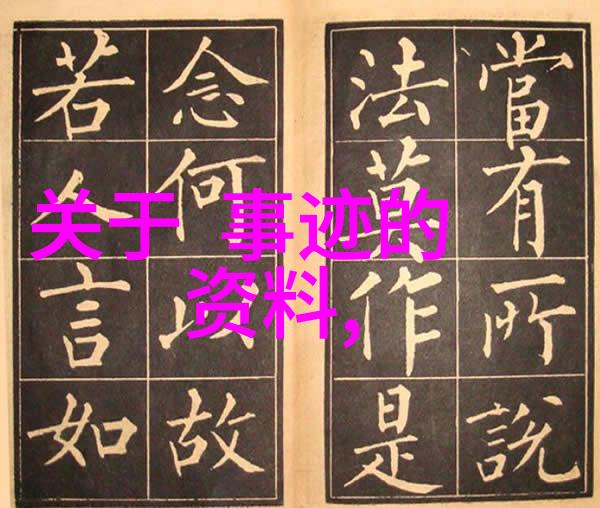 當有所說
法莫作是
念何以故
若人言如
关于 事迹的
资料,